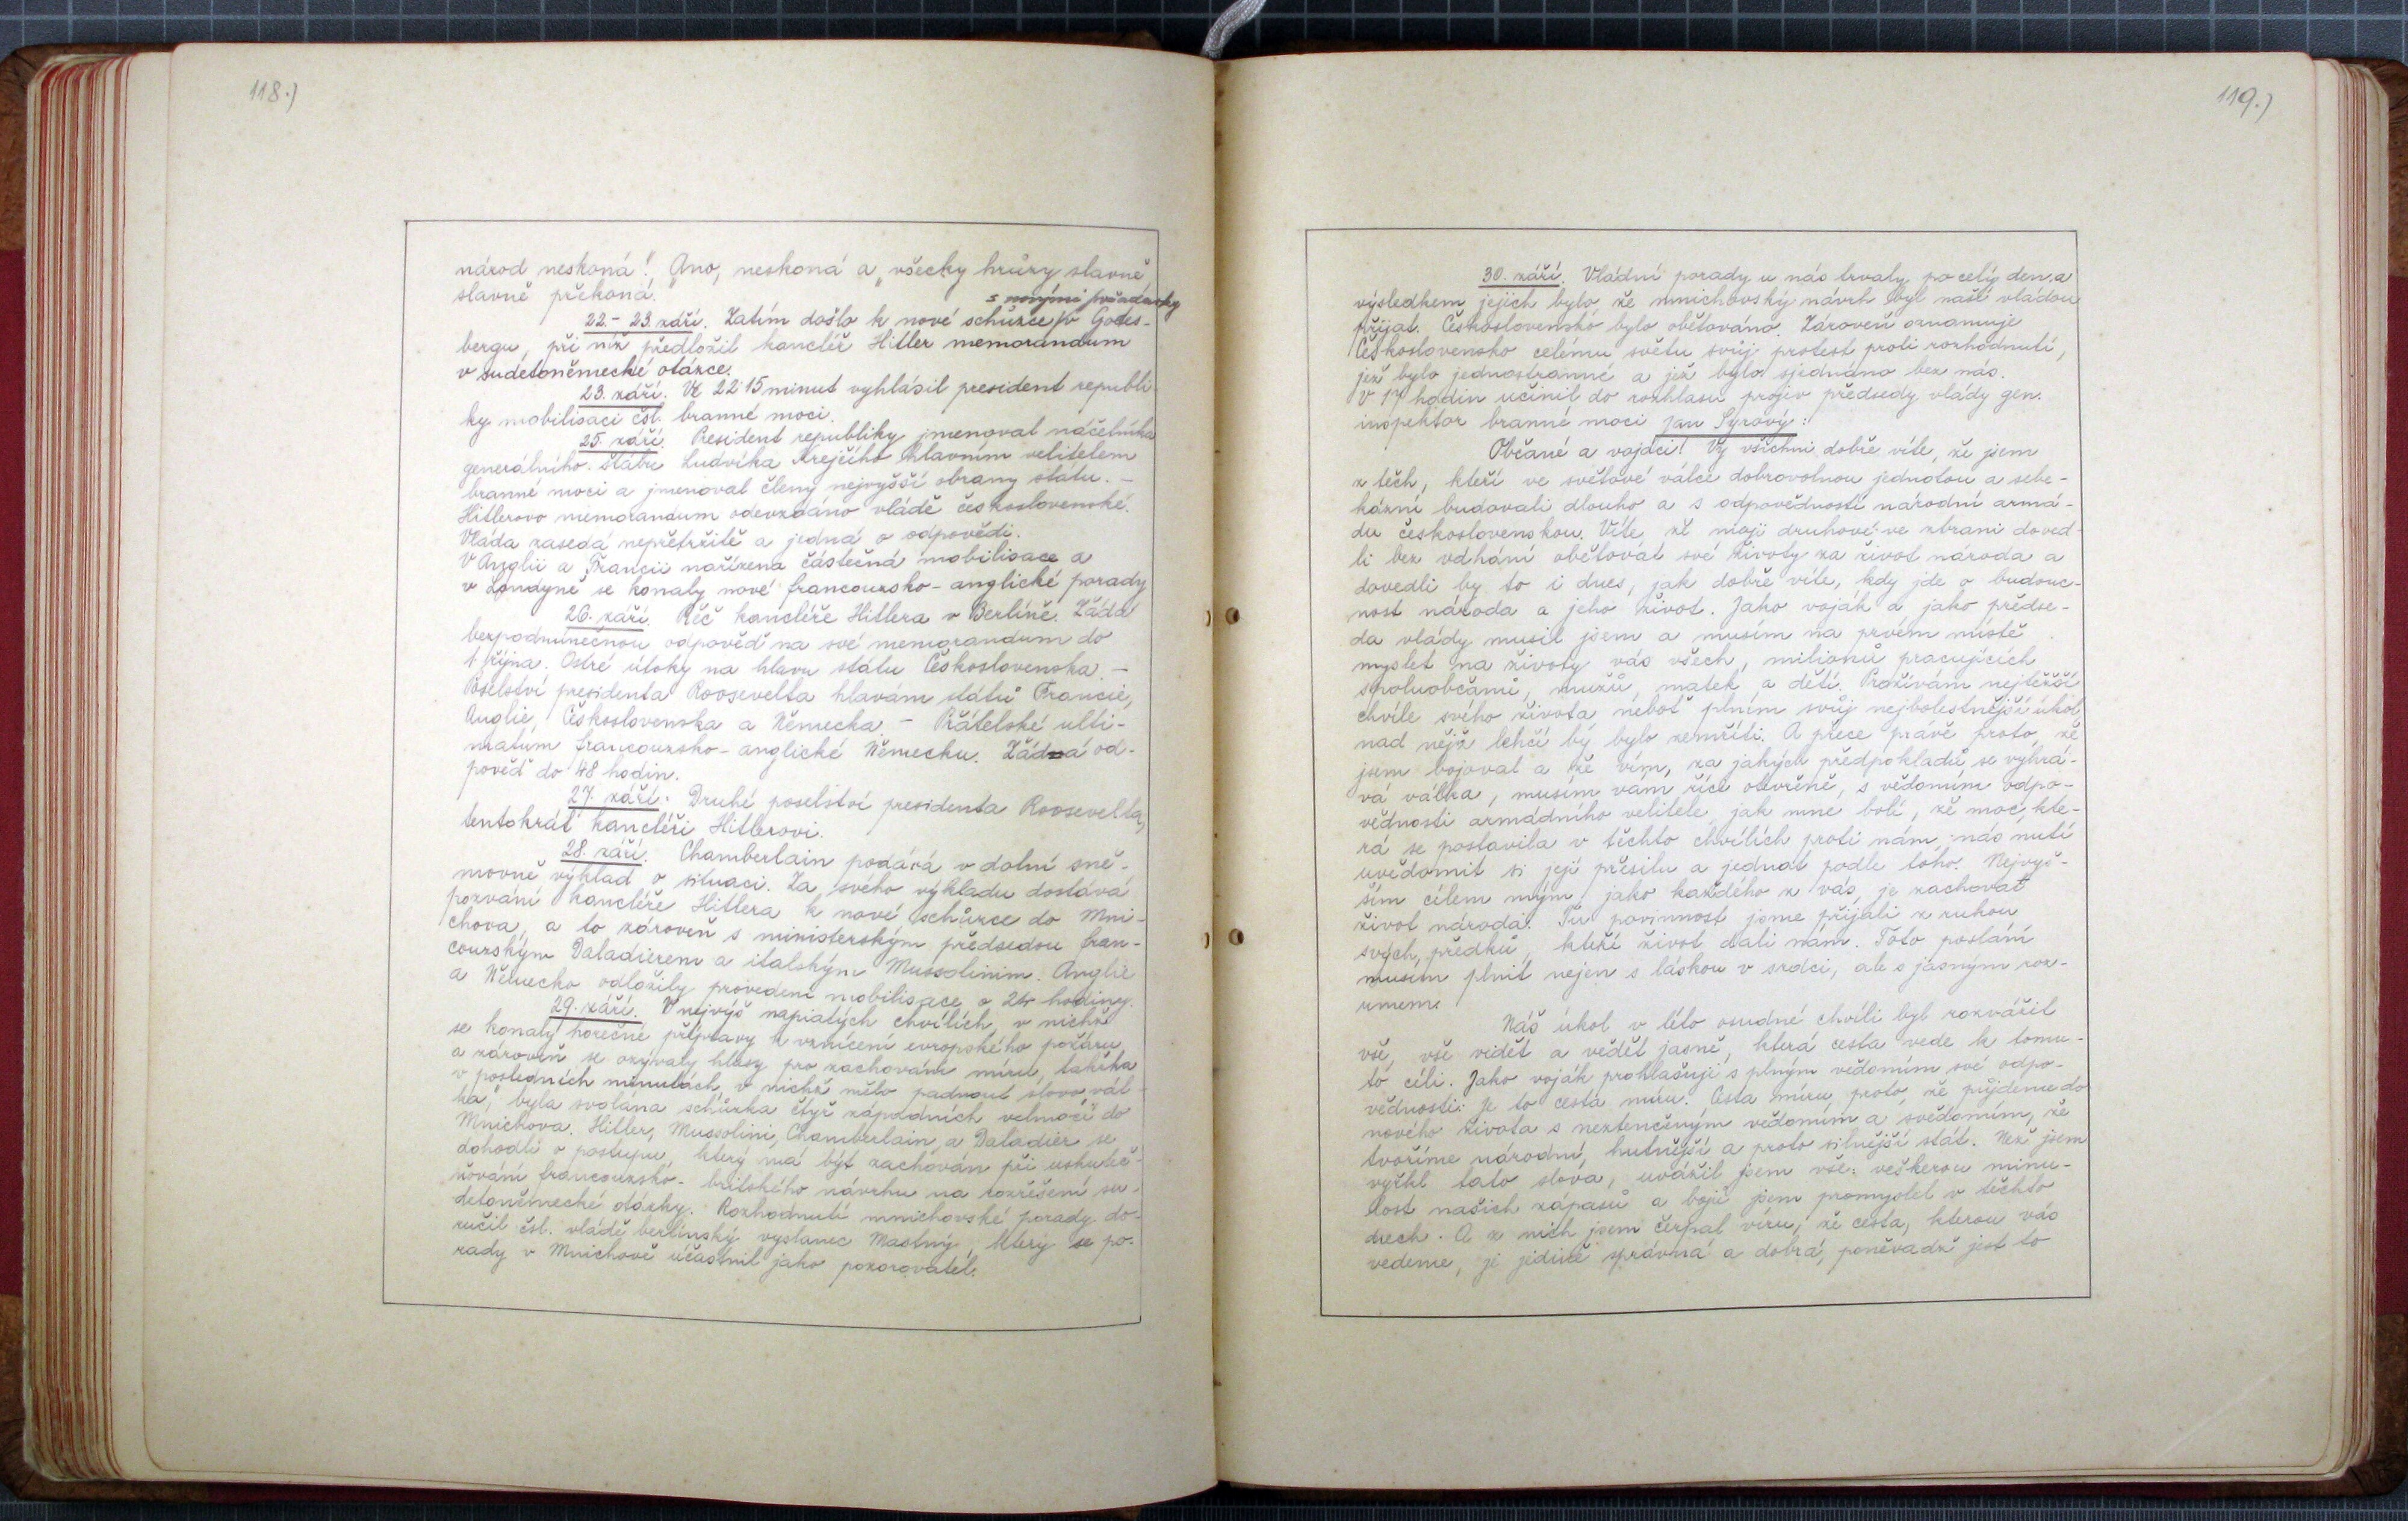 118.)
národ neskoná!" Ano, neskoná a „všecky hrůzy slavně
slavně překoná."
s novými požadavky
22.- 23. září. Zatím došlo k nové schůzce v Godes-
bergu, při níž předložil kancléř Hitler memorandum
v sudetoněmecké otázce.
23. září. Ve 22'15 minut vyhlásil president republi-
ky mobilisaci čsl. branné moci.
25. září. President republiky jmenoval náčelníka
generálního štábu Ludvíka Krejčího hlavním velitelem
branné moci a jmenoval členy nejvyšší obrany státu. -
Hitlerovo memorandum odevzdáno vládě československé.
Vláda zasedá nepřetržitě a jedná o odpovědi.
V Anglii a Francii nařízena částečná mobilisace a
v Londýně se konaly nové francouzsko-anglické porady
26. září. Řěč kancléře Hitlera v Berlíně. Žádá
bezpodmínečnou odpověď na své memorandum do
1 října. Ostré útoky na hlavu státu Československa. -
Poselství presidenta Roosevelta hlavám států Francie,
Anglie, Československa a Německa. - Přátelské ulti-
matum francouzsko-anglické Německu. Žádá od-
pověď do 48 hodin.
27. září. Druhé poselství presidenta Roosevelta,
tentokrát kancléři Hitlerovi.
28. září. Chamberlain podává v dolní sně-
movně výklad o situaci. Za svého výkladu dostává
pozvání kancléře Hitlera k nové schůzce do Mni-
chova, a to zároveň s ministerským předsedou fran-
couzským Daladierem a italským Mussolinim. Anglie
a Německo odložily provedení mobilisace o 24 hodiny.
29. září. V nejvýš napiatých chvílích, v nichž
se konaly horečné přípravy k vznícení evropského požáru
a zároveň se ozývaly hlasy pro zachování míru, takřka
v posledních minutách, v nichž mělo padnout slovo „vál-
ka," byla svolána schůzka čtyř západních velmocí do
Mnichova. Hitler, Mussolini, Chamberlain, a Daladier se
dohodli o postupu, který má být zachován při uskuteč-
ňování francouzsko-britského návrhu na rozřešení su-
detoněmecké otázky. Rozhodnutí mnichovské porady do-
ručil čsl. vládě berlínský vyslanec Mastný, který se po-
rady v Mnichově účastnil jako pozorovatel.
119.)
30. září. Vládní porady u nás trvaly po celý den a
výsledkem jejich bylo, že mnichovský návrh byl naší vládou
přijat. Československo bylo obětováno. Zároveň oznamuje
Československo celému světu svůj protest proti rozhodnutí,
jež bylo jednostranné a jež bylo sjednáno bez nás.
V 17 hodin učinil do rozhlasu projev předsedy vlády gen.
inspektor branné moci Jan Syrový:
Občané a vojáci! Vy všichni dobře víte, že jsem
z těch, kteří ve světové válce dobrovolnou jednotou a sebe-
kázní budovali dlouho a s odpovědností národní armá-
du československou. Víte, že moji druhové ve zbrani doved-
li bez vdhání obětovat své životy za život národa a
dovedli by to i dnes, jak dobře víte, kdy jde o budouc-
nost národa a jeho život. Jako voják a jako předse-
da vlády musil jsem a musím na prvém místě
myslet na životy vás všech, milionů pracujících
spoluobčanů, mužů, matek a dětí. Prožívám nejtěžší
chvíle svého života, neboť plním svůj nejbolestnější úkol,
nad nějž lehčí by bylo zemříti. A přece právě proto, že
jsem bojoval a že vím, za jakých předpokladů se vyhrá-
vá válka, musím vám říci otevřeně, s vědomím odpo-
vědnosti armádního velitele, jak mne bolí, že moc, kte-
rá se postavila v těchto chvílích proti nám, nás nutí
uvědomit si její přesilu a jednat podle toho. Nejvyš-
ším cílem mým, jako každého z vás, je zachovat
život národa. Tu povinnost jsme přijali z rukou
svých předků, kteří život dali nám. Toto poslání
musím plnit nejen s láskou v srdci, ale s jasným roz-
umem.
Náš úkol v této osudné chvíli byl rozvážit
vše, vše vidět a vědět jasně, která cesta vede k tomu-
to cíli. Jako voják prohlašuji s plným vědomím své odpo-
vědnosti: Je to cesta míru. Cesta míru, proto, že půjdeme do
nového života s neztenčeným vědomím a svědomím, že
tvoříme národní, hutnější a proto silnější stát. Než jsem
vyřkl tato slova, uvážil jsem vše: veškerou minu-
lost našich zápasů a bojů jsem promyslel v těchto
dnech. A z nich jsem čerpal víru, že cesta, kterou vás
vedeme, je jedině správná a dobrá, poněvadž jest to